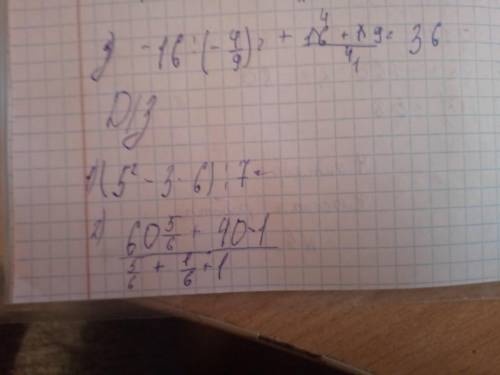 3) -16 : (-4/9) = + 16 · 9 / 4 = 36
Д/З
1) (5² - 3 · 6) : 7 =
2) 60 5/6 + 40 - 1 / 5/6 + 1/6 + 1